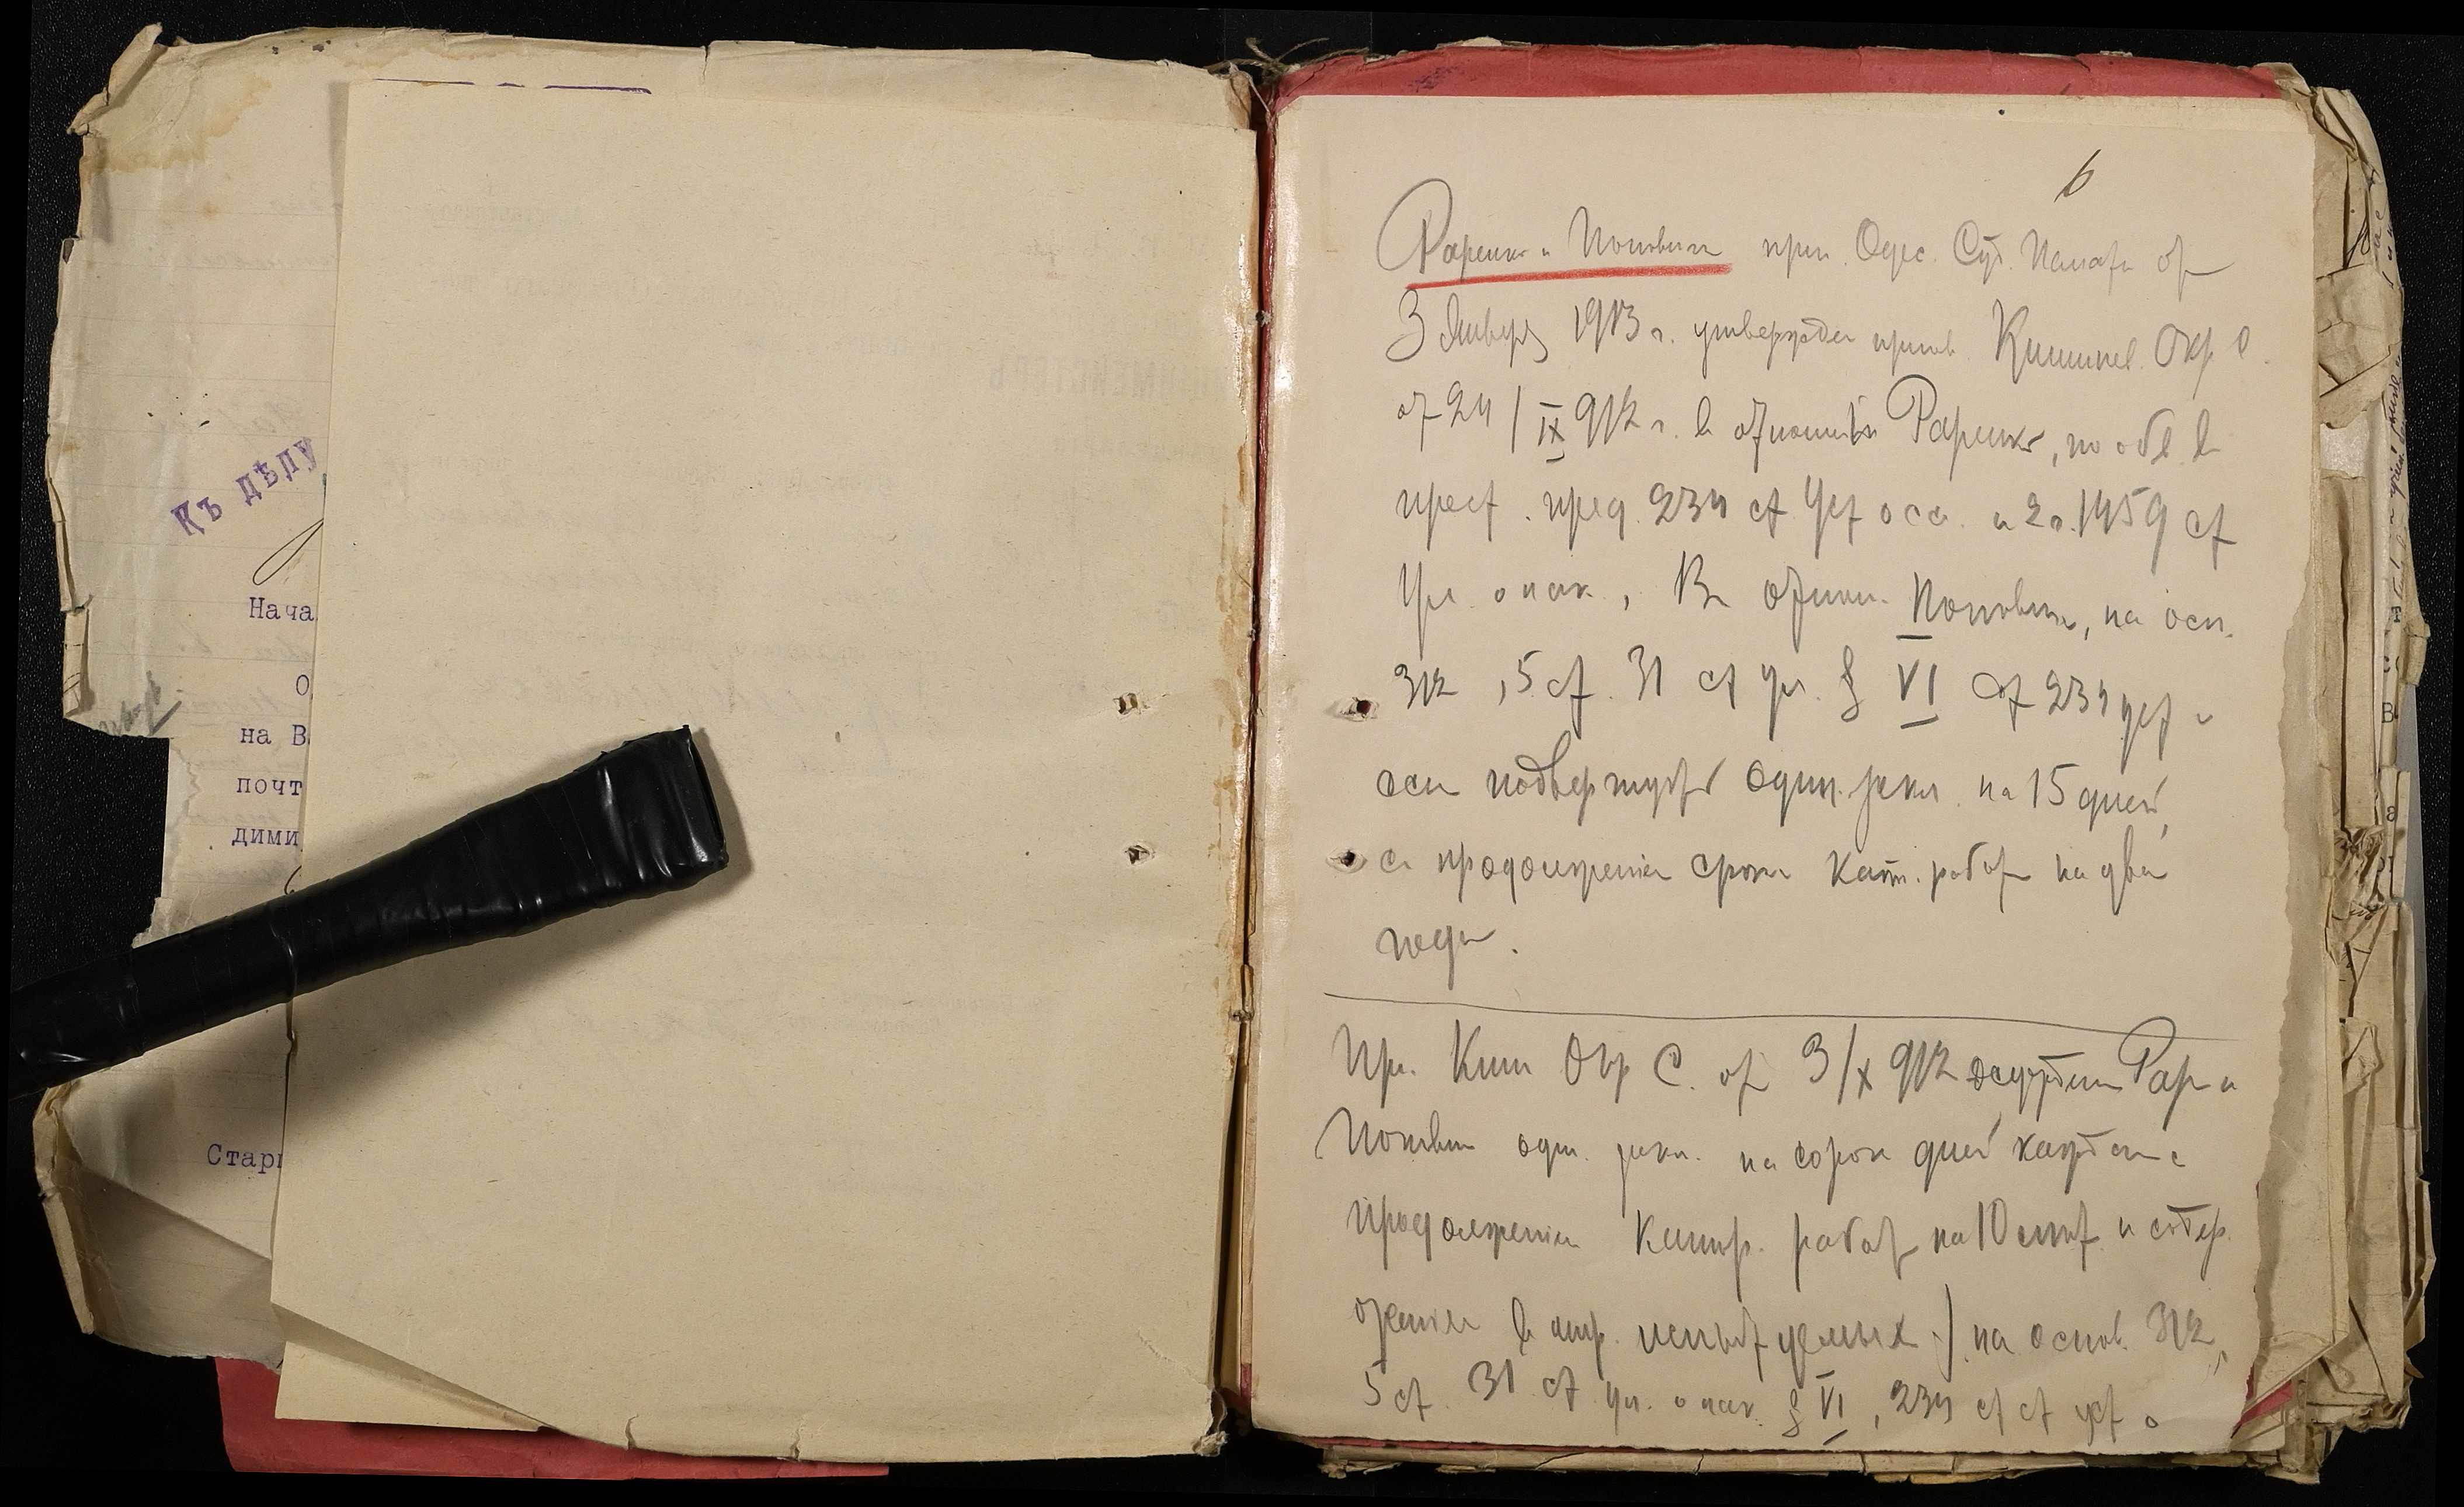 Къ дѣлу
Нача
О
на В
почт
дими
Стар
6
Раренко и Поповъ при. Одес. Суд. Палаты от
3 Января 1913 г. утвержден пригов. Кишинев. Окр С.
от 24/IX 912 г. в отношеніи Раренко, по обв. в
прест. пред. 234 ст Уст о сс. и 2 ч. 1459 ст
Ул. о нак, В отнош. Поповъ, на осн.
312, 5 ст. 31 ст ул. § VI ст 234 уст о
ссы подвергнуть один. закл. на 15 дней,
с продолженіем срока кат. работ на два
года.
Пр. Киш Окр С. от 3/X 912 осуждены Рар и
Поповъ один. закл. на сорок дней каждаго с
продолженіем катор. работ на 10 лет и содер.
жаніем в отр. испытуемых / на основ. 312,
5 ст. 31 ст ул. о нак. § VI, 234 ст ст уст о